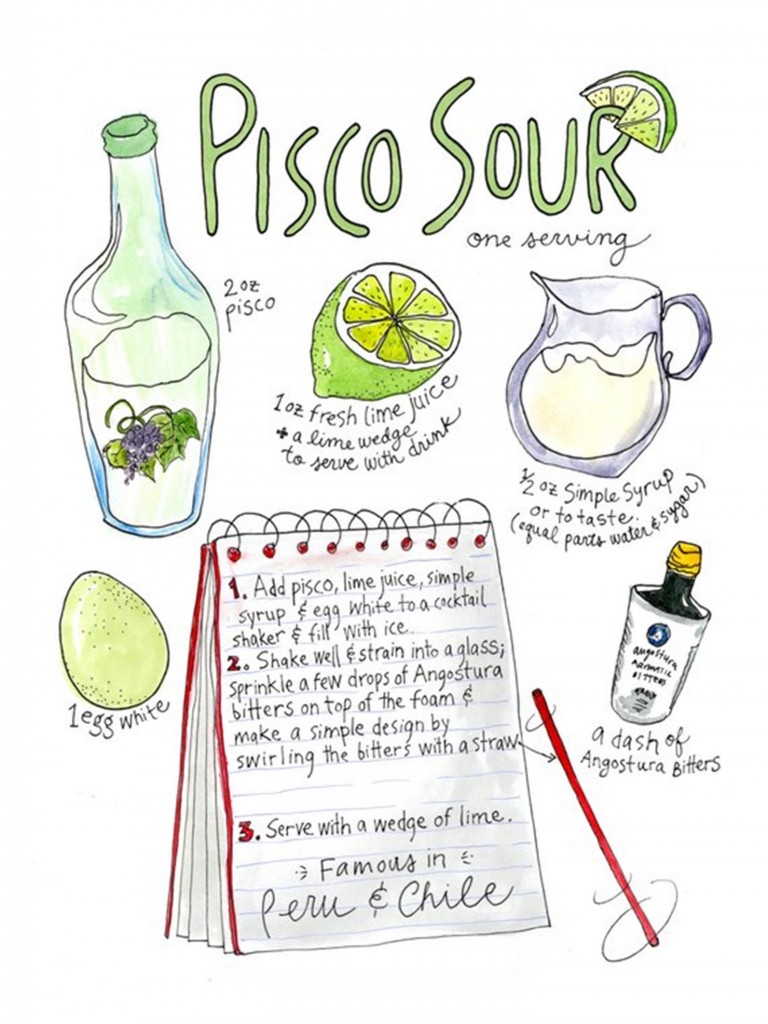 PISCO SOUR
one serving
2oz
pisco
1oz fresh lime juice
+ a lime wedge
to serve with drink
1/2 oz Simple Syrup
or to taste.
(equal parts water & sugar)
1. Add pisco, lime juice, simple
syrup & egg white to a cocktail
shaker & fill with ice.
2. Shake well & strain into a glass;
sprinkle a few drops of Angostura
bitters on top of the foam &
make a simple design by
swirling the bitters with a straw.
3. Serve with a wedge of lime.
Famous in
Peru & Chile
1 egg white
angostura
aromatic
bitters
a dash of
Angostura Bitters